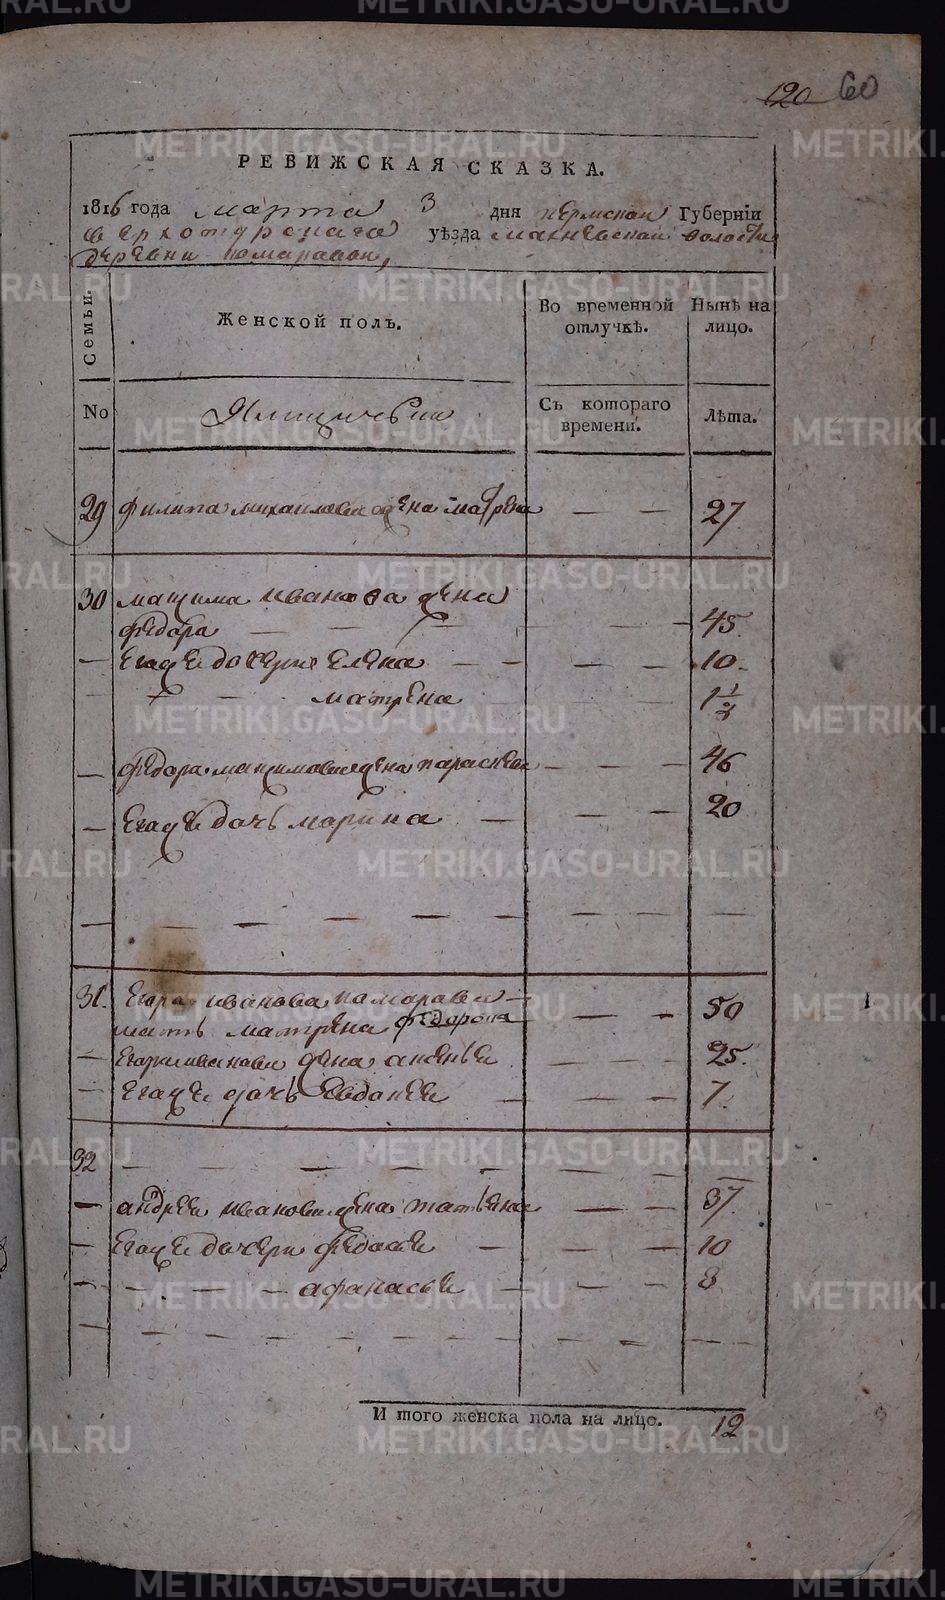 120 60
РЕВИЖСКАЯ СКАЗКА.
1816 года марта 3 дня пермской Губерніи
верхотурскаго уѣзда махневской волости
деревни комаравой,
Семьи.
Женской полъ.
Во временной отлучкѣ.
Нынѣ на лицо.
No
Ямщичьи
Съ котораго времени.
Лѣта.
29 филипа михаилова жена матрена — — 27
30 мащима иванова жена
федора — — — — — 45
— егоже дочери елена — — — — 10
— — матрена 1 1/2
— федора мащимова жена параскевья — — 46
— егоже дочь марина — — — 20
31. егора иванова камарава
мать матрена федорова — — 50
— егора иванова жена аненья — — 25
— егоже дочь евдокея — — — 7
32 — — — — — —
— андрея иванова жена татьяна — — 37
— егоже дочери федосья — — — 10
— — — — афанасья — — — 8
И того женска пола на лицо. 12
METRIKI.GASO-URAL.RU